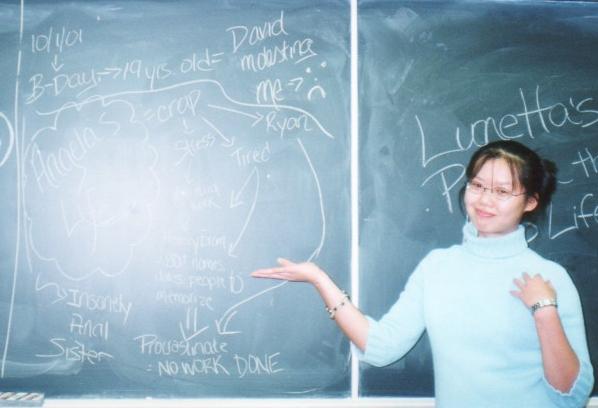 10/1/01
B-Day → 19 yrs. old =
David
molesting
me →
Angela's
Life
= crap
Ryan
Stress
Tired
work
names
people to
memorize
Insanely
Anal
Sister
Procrastinate
= NO WORK DONE
Lunetta's
Life